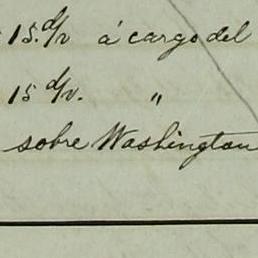 15. d/v á cargo del
15 d/v. "
sobre Washington